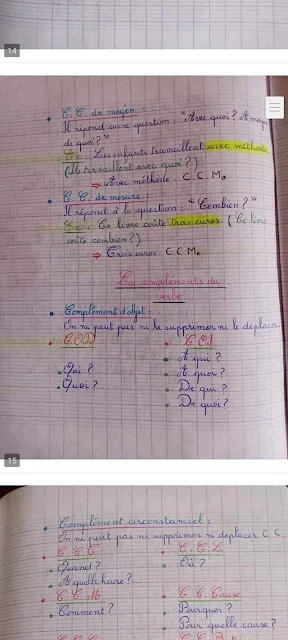 14
• C. C. de moyen :
Il répond aux question : "Avec quoi ? A moyen
de quoi ?"
Ex : Les enfants travaillent avec méthode.
(Ils travaillent avec quoi ?)
⇒ Avec méthode : C. C. M.
• C. C. de mesure :
Il répond à la question : "Combien ?"
Ex : Ce livre coûte trois euros. (Ce livre
coûte combien ?)
⇒ Trois euros : C C M.
Les compléments du
verbe
• Complément d'objet :
On ni peut pas ni le supprimer ni le deplacer
• COD
• COI
• Qui ?
• Quoi ?
• A qui ?
• A quoi ?
• De qui ?
• De quoi ?
15
• Complément circonstanciel :
On ni peut pas ni supprimer ni deplacer C. C.
• C. C. T
• Quand ?
• A quelle heure ?...
• C. C. L
• Où ?
• C. C. M
• Comment ?
• C. C. Cause
• Pourquoi ?
• Pour quelle cause ?